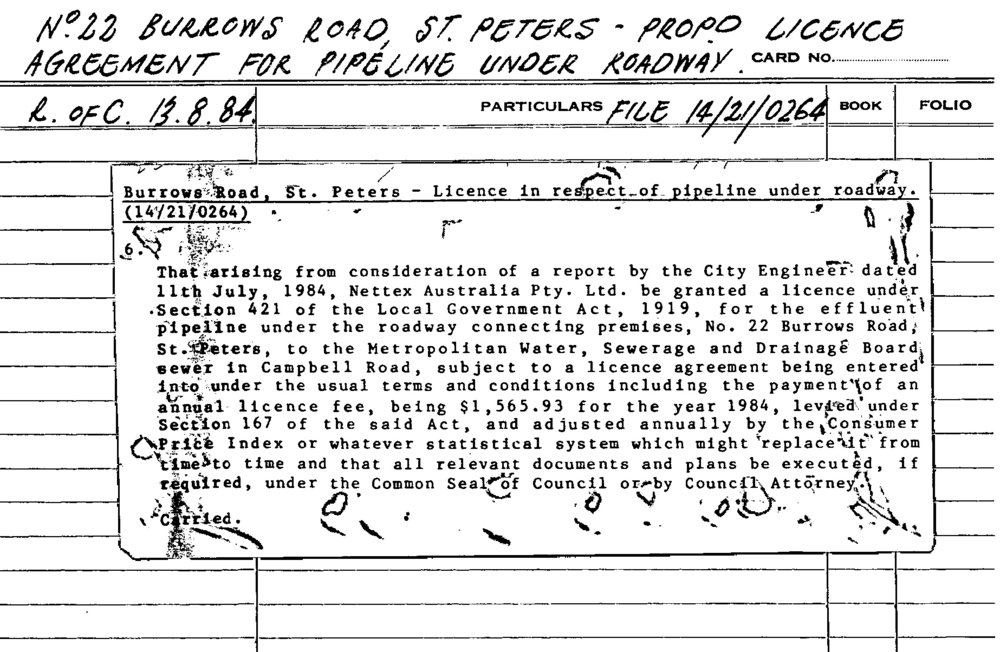 Nº 22 BURROWS ROAD, ST. PETERS - PROPD LICENCE
AGREEMENT FOR PIPELINE UNDER ROADWAY. CARD NO.
R. OF C. 13.8.84. PARTICULARS FILE 14/21/0264 BOOK FOLIO
Burrows Road, St. Peters - Licence in respect of pipeline under roadway.
(14/21/0264)
6.
That arising from consideration of a report by the City Engineer dated
11th July, 1984, Nettex Australia Pty. Ltd. be granted a licence under
Section 421 of the Local Government Act, 1919, for the effluent
pipeline under the roadway connecting premises, No. 22 Burrows Road,
St. Peters, to the Metropolitan Water, Sewerage and Drainage Board
sewer in Campbell Road, subject to a licence agreement being entered
into under the usual terms and conditions including the payment of an
annual licence fee, being $1,565.93 for the year 1984, levied under
Section 167 of the said Act, and adjusted annually by the Consumer
Price Index or whatever statistical system which might replace it from
time to time and that all relevant documents and plans be executed, if
required, under the Common Seal of Council or by Council Attorney.
Carried.